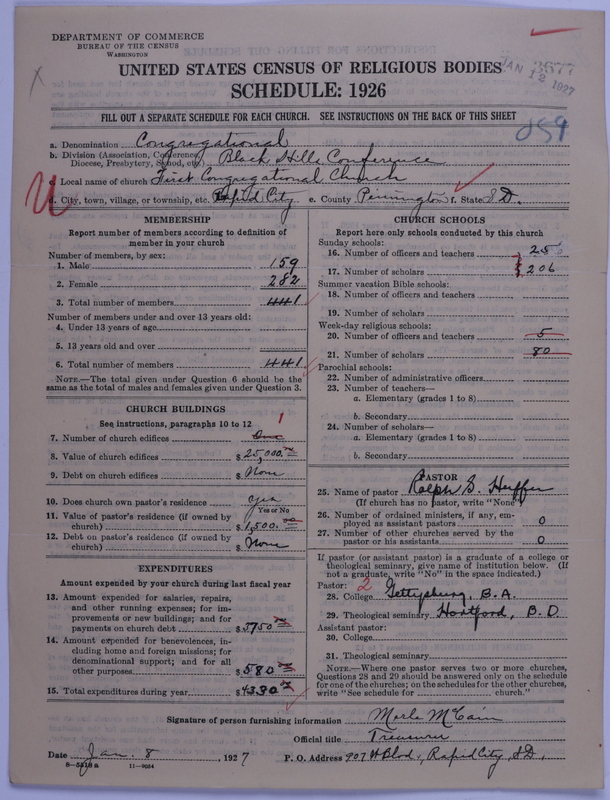 DEPARTMENT OF COMMERCE
BUREAU OF THE CENSUS
WASHINGTON
JAN 12 1927
3677
UNITED STATES CENSUS OF RELIGIOUS BODIES
SCHEDULE: 1926
FILL OUT A SEPARATE SCHEDULE FOR EACH CHURCH. SEE INSTRUCTIONS ON THE BACK OF THIS SHEET
059
a. Denomination Congregational
b. Division (Association, Conference, Diocese, Presbytery, Synod, etc.) Black Hills Conference
c. Local name of church First Congregational Church
d. City, town, village, or township, etc. Rapid City e. County Pennington f. State S.D.
MEMBERSHIP
Report number of members according to definition of
member in your church
Number of members, by sex:
1. Male 159
2. Female 282
3. Total number of members 441
Number of members under and over 13 years old:
4. Under 13 years of age
5. 13 years old and over
6. Total number of members 441
NOTE.—The total given under Question 6 should be the
same as the total of males and females given under Question 3.
CHURCH BUILDINGS
See instructions, paragraphs 10 to 12
1
7. Number of church edifices One
8. Value of church edifices $25,000.00
9. Debt on church edifices $ None
10. Does church own pastor's residence yes
Yes or No
11. Value of pastor's residence (if owned by
church) $1,500.00
12. Debt on pastor's residence (if owned by
church) $ None
EXPENDITURES
Amount expended by your church during last fiscal year
13. Amount expended for salaries, repairs,
and other running expenses; for im-
provements or new buildings; and for
payments on church debt $3750.00
14. Amount expended for benevolences, in-
cluding home and foreign missions; for
denominational support; and for all
other purposes $580.00
15. Total expenditures during year $4330.00
CHURCH SCHOOLS
Report here only schools conducted by this church
Sunday schools:
16. Number of officers and teachers 25
17. Number of scholars 206
Summer vacation Bible schools:
18. Number of officers and teachers
19. Number of scholars
Week-day religious schools:
20. Number of officers and teachers 5
21. Number of scholars 80
Parochial schools:
22. Number of administrative officers
23. Number of teachers—
a. Elementary (grades 1 to 8)
b. Secondary
24. Number of scholars—
a. Elementary (grades 1 to 8)
b. Secondary
PASTOR
25. Name of pastor Ralph S.
(If church has no pastor, write "None")
26. Number of ordained ministers, if any, em-
ployed as assistant pastors 0
27. Number of other churches served by the
pastor or his assistants 0
If pastor (or assistant pastor) is a graduate of a college or
theological seminary, give name of institution below. (If
not a graduate, write "No" in the space indicated.)
Pastor: 2
28. College Gettysburg, B.A.
29. Theological seminary Hartford, B.D.
Assistant pastor:
30. College
31. Theological seminary
NOTE.—Where one pastor serves two or more churches,
Questions 28 and 29 should be answered only on the schedule
for one of the churches; on the schedules for the other churches,
write "See schedule for church."
Signature of person furnishing information Merle McCain
Official title Treasurer
Date Jan. 8, 1927 P. O. Address 907 W Blvd., Rapid City, S.D.
8—5518a 11—9054